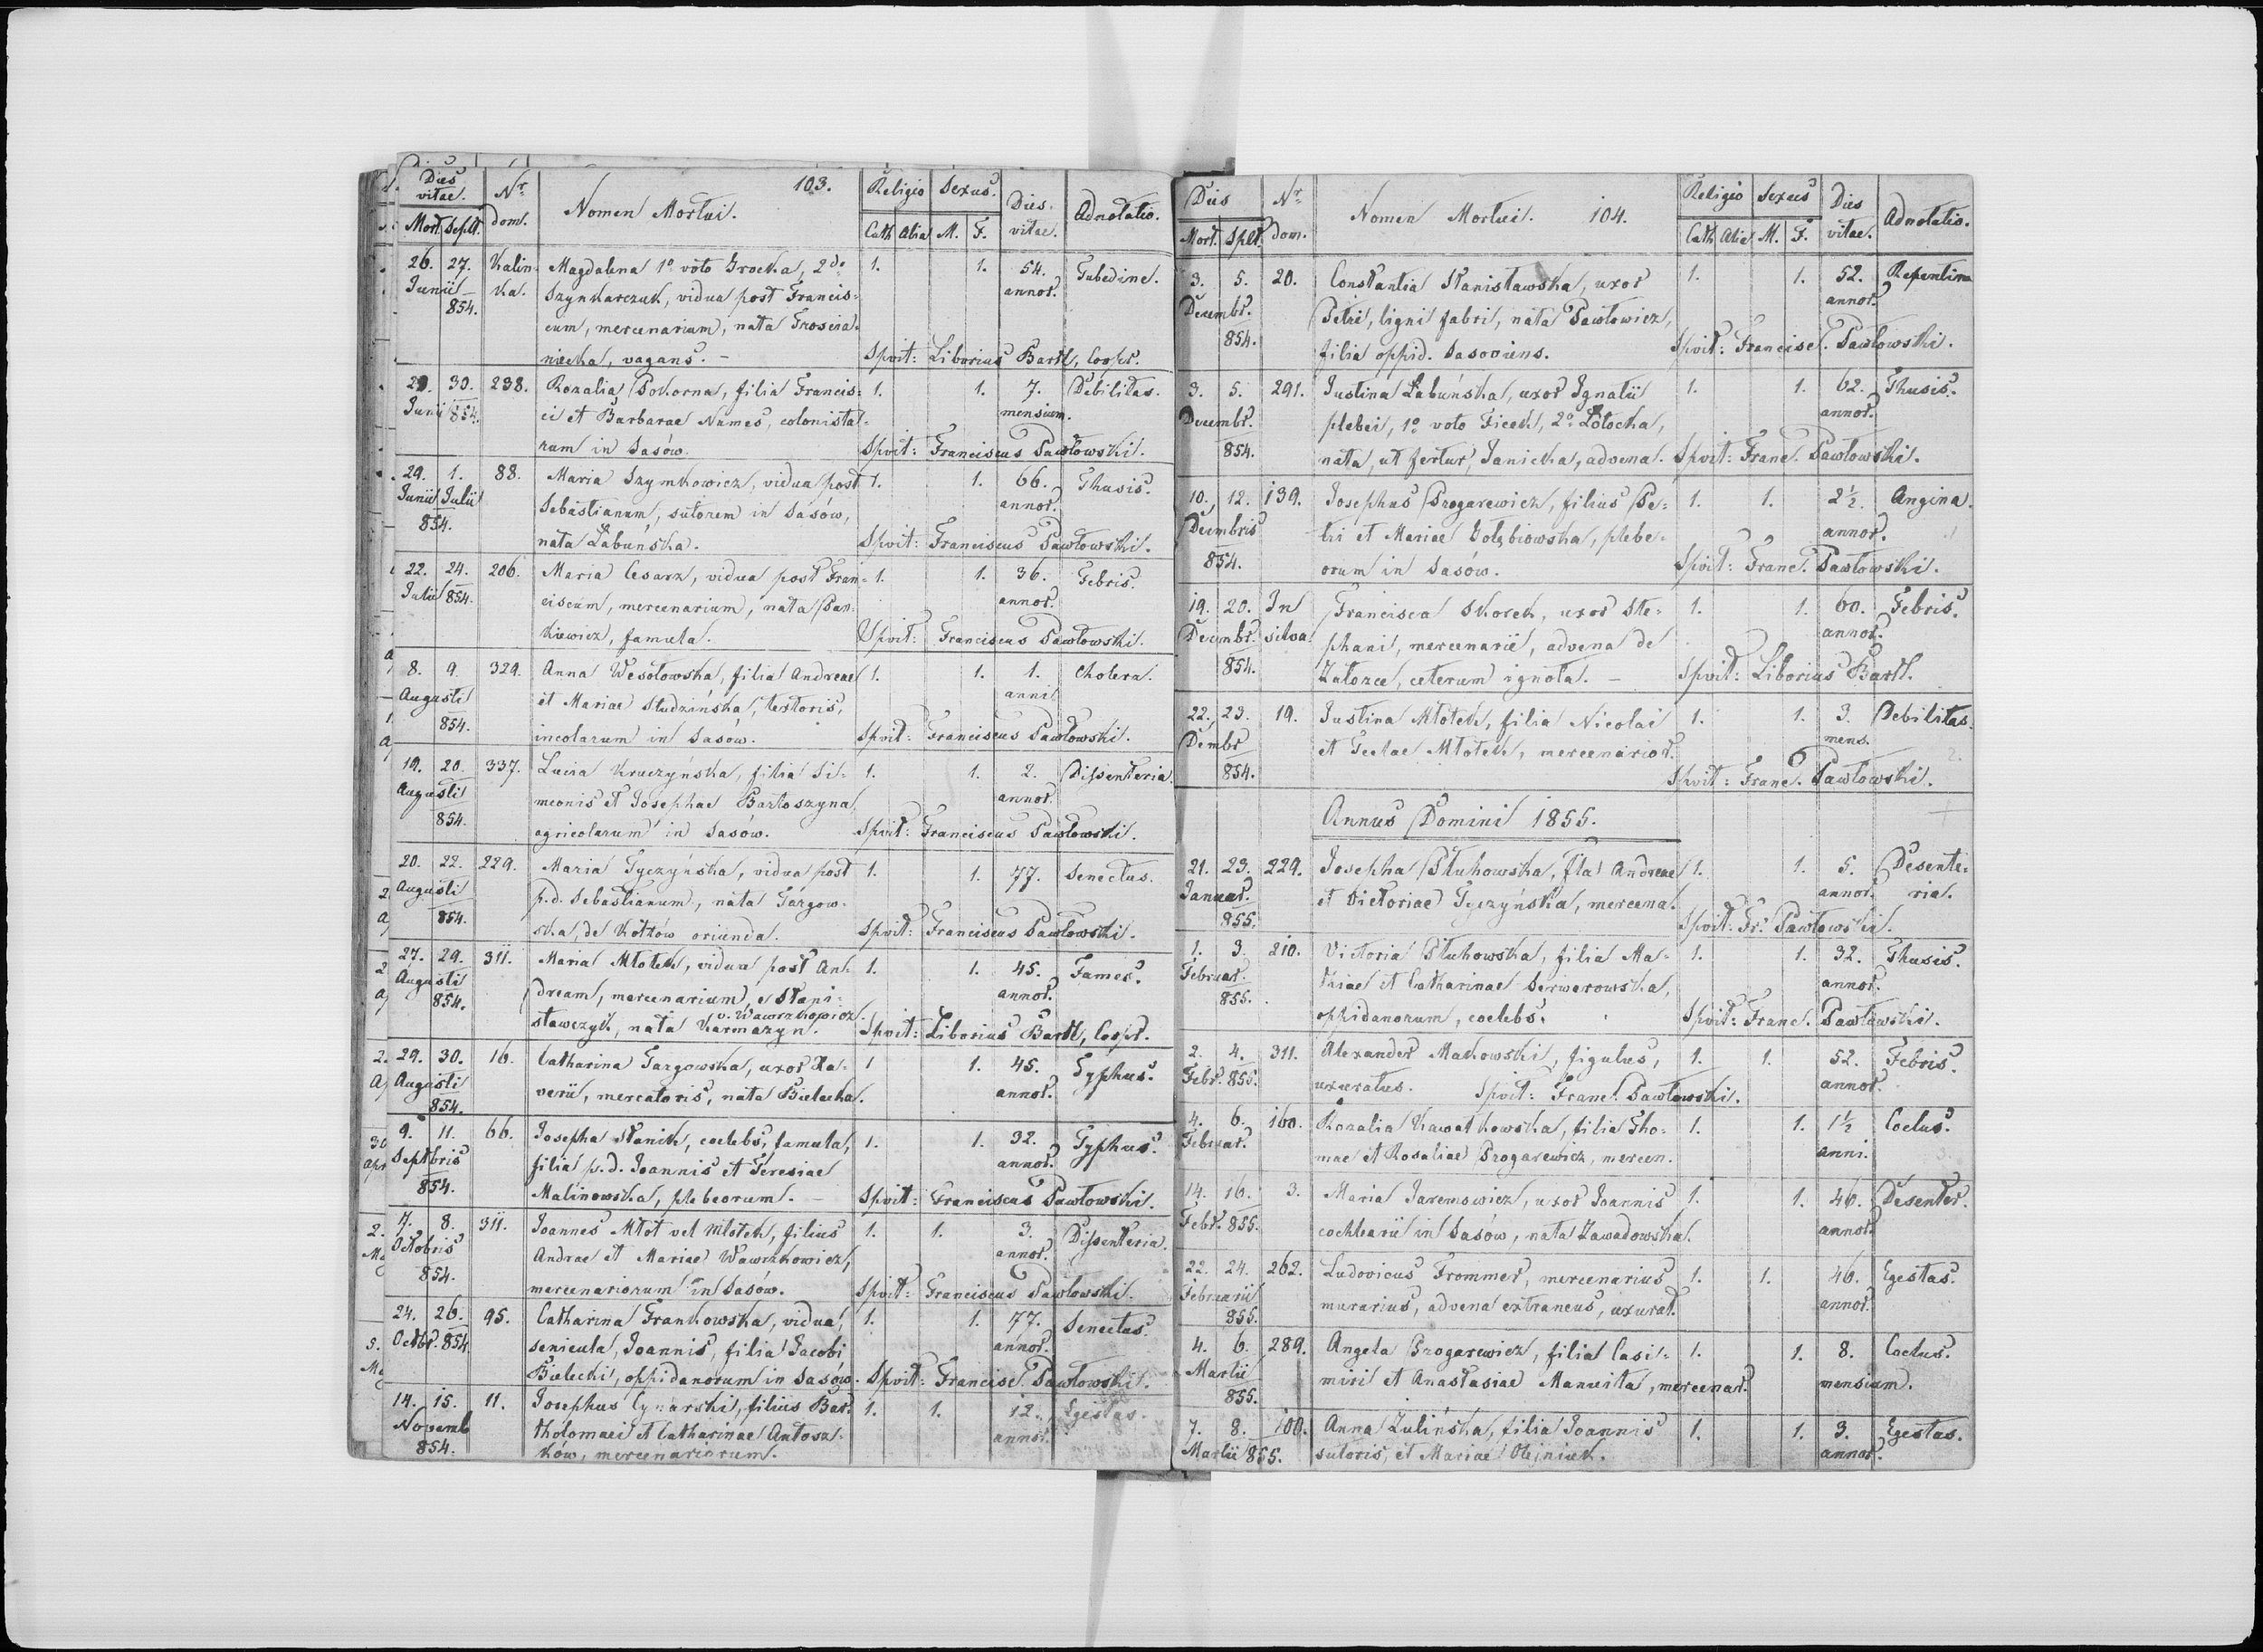 Dies vitae. Nr. dom. Nomen Mortui. 103. Religio Sexus. Dies vitae. Adnotatio.
Mort. Seplt. Cath Alia M. F.
26. 27. Kalin- Magdalena 1º voto Grocka, 2do 1. 1. 54. Gubedine.
Junii ka. Szynkarczuk, vidua post Francis- annor.
854. cum, mercenarium, nata
vagans. – Spvit: Liborius Bartl, Coopr.
29. 30. 238. Rozalia Pokorna, filia Francis- 1. 1. 7. Debilitas.
Junii 854. ci et Barbarae Names, colonista- mensium.
rum in Sasów. Spvit: Franciscus Pawłowski.
29. 1. 88. Maria Szymkowicz, vidua post 1. 1. 66. Thusis.
Junii Julii Sebastianum, sutorem in Sasów, annor.
854. nata Łabuńska. Spvit: Franciscus Pawłowski.
22. 24. 206. Maria Cesarz, vidua post Fran- 1. 1. 36. Febris.
Julii 854. ciscum, mercenarium, nata Pan- annor.
kiewicz, famula. Spvit: Franciscus Pawłowski.
8. 9. 329. Anna Wesołowska, filia Andreae 1. 1. 1. Cholera.
Augusti et Mariae Studzińska, textoris, anni
854. incolarum in Sasów. Spvit: Franciscus Pawłowski.
19. 20. 337. Lucia Kruczyńska, filia Si- 1. 1. 2. Dissenteria.
Augusti meonis et Josephae Bartoszyna annor.
854. agricolarum in Sasów. Spvit: Franciscus Pawłowski.
20. 22. 229. Maria Tyczyńska, vidua post 1. 1. 77. Senectus.
Augusti p.d. Sebastianum, nata Targow-
854. ska, de Kołtów oriunda. Spvit: Franciscus Pawłowski.
27. 29. 311. Maria Młotek, vidua post An- 1. 1. 45. Fames.
Augusti dream, mercenarium, e Stani- annor.
854. v. Wawrzkowicz
sławczyk, nata Karmazyn. Spvit: Liborius Bartl, Coopr.
29. 30. 16. Catharina Targowska, uxor Xa- 1 1. 45. Typhus.
Augusti verii, mercatoris, nata Bielecka. annor.
854.
9. 11. 66. Josepha Stanik, coelebs, famula, 1. 1. 32. Typhus.
Septbris filia p.d. Joannis et Teresiae annor.
854. Malinowska, plebeorum. – Spvit: Franciscus Pawłowski.
7. 8. 311. Joannes Młot vel Młotek, filius 1. 1. 3. Dissenteria.
Octobris Andrae et Mariae Wawrzkowicz, annor.
854. mercenariorum in Sasów. Spvit: Franciscus Pawłowski.
24. 26. 95. Catharina Frankowska, vidua, 1. 1. 77. Senectus.
Octbr. 854 senicula, Joannis, filia Jacobi annor.
Bielecki, oppidanorum in Sasów. Spvit: Francisc. Pawłowski.
14. 15. 11. Josephus Cynarski, filius Bar- 1. 1. 12. Egestas.
Novemb tholomaei et Catharinae Antosz- annor.
854. ków, mercenariorum.
Dies Nr. dom. Nomen Mortui. 104. Religio Sexus Dies vitae. Adnotatio.
Mort. Splt. Cath Alia M. F.
3. 5. 20. Constantia Stanisławska, uxor 1. 1. 52. Repentina
Decembr. Petri, ligni fabri, nata Pawłowicz, annor.
854. filia oppid. Sasoviens. Spvit: Francisc. Pawłowski.
3. 5. 291. Justina Łabuńska, uxor Ignatii 1. 1. 62. Thusis.
Decembr. plebei, 1º voto Ficek, 2º Łotocka, annor.
854. nata, ut fertur, Janicka, advena. Spvit: Franc. Pawłowski.
10. 12. 139. Josephus Progarewicz, filius Pe- 1. 1. 2½ Angina.
Decembris tri et Mariae Gołębiowska, plebe- annor.
854. orum in Sasów. Spvit: Franc. Pawłowski.
19. 20. In Francisca Skorek, uxor Ste- 1. 1. 60. Febris.
Decembr. silva. phani, mercenarii, advena de annor.
854. Załozce, ceterum ignota. – Spvit: Liborius Bartl.
22. 23. 19. Justina Młotek, filia Nicolai 1. 1. 3. Debilitas.
Dembr et Teclae Młotek, mercenarior. mens.
854. Spvit: Franc. Pawłowski.
Annus Domini 1855.
21. 23. 229. Josepha Pluhowska, fla Andreae 1. 1. 5. Desente-
Januar. et Victoriae Tyczyńska, mercena. annor. ria.
855. Spvit: Fr. Pawłowski.
1. 3. 210. Victoria Pluhowska, filia Ma- 1. 1. 32. Thusis.
Februar. thiae et Catharinae Serwerowska, annor.
855. oppidanorum, coelebs. Spvit: Franc. Pawłowski.
2. 4. 311. Alexander Makowski, figulus, 1. 1. 52. Febris.
Febr. 855. uxuratus. Spvit: Franc. Pawłowski. annor.
4. 6. 160. Rozalia Kawałkowska, filia Tho- 1. 1. 1½ Coelus.
Februar. mae et Rosaliae Progarewicz, mercen. anni.
14. 16. 3. Maria Jaremowicz, uxor Joannis 1. 1. 46. Desenter.
Febr. 855. cochlearii in Sasów, nata Zawadowska. annor.
22. 24. 262. Ludovicus Frommer, mercenarius 1. 1. 46. Egestas.
Februarii murarius, advena extraneus, uxurat. annor.
855.
4. 6. 289. Angela Progarewicz, filia Casi- 1. 1. 8. Coelus.
Martii miri et Anastasiae Manuita, mercenar. mensium.
855.
7. 8. 100. Anna Zulińska, filia Joannis 1. 1. 3. Egestas.
Martii 855. sutoris, et Mariae Olejniuk. annor.